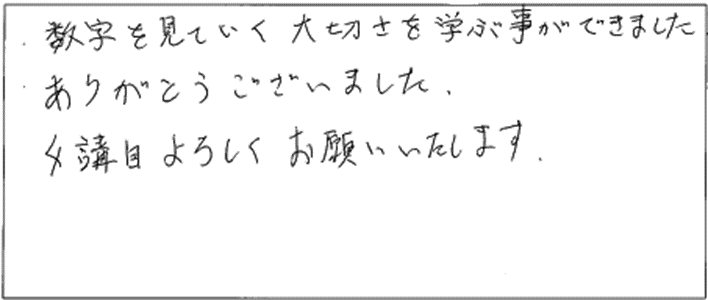 ・数字を見ていく大切さを学ぶ事ができました
・ありがとうございました.
4講目よろしくお願いいたします.